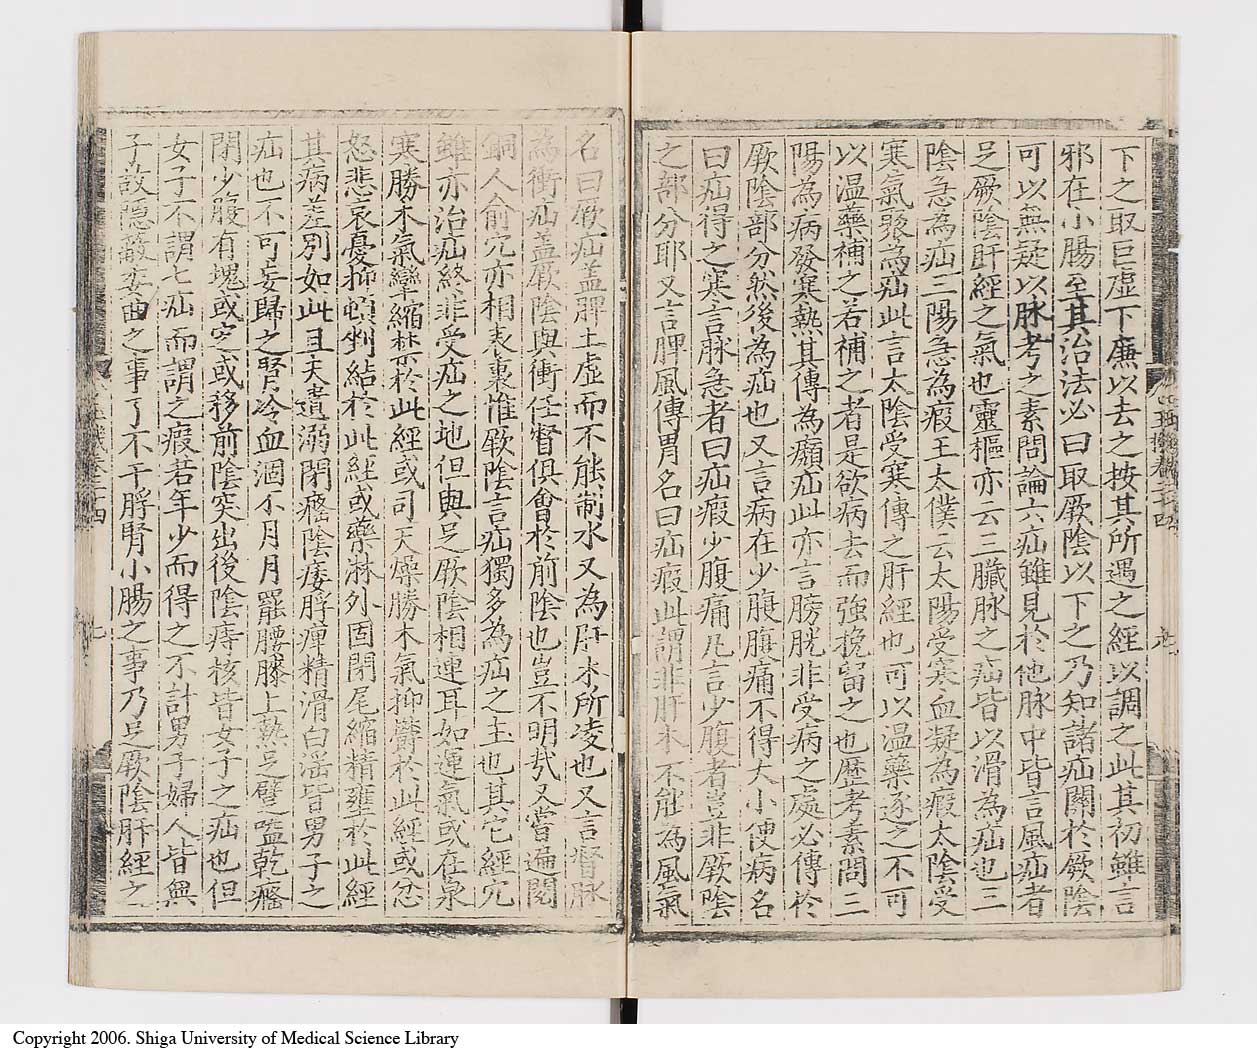 下之取巨虛下廉以去之按其所過之經以調之此其初雖言
邪在小腸至其治法必曰取厥陰以下之乃知諸疝關於厥陰
可以無疑以脉考之素問論六疝雖見於他脉中皆言風疝者
足厥陰肝經之氣也靈樞亦云三臟脉之疝皆以滑為疝也三
陰急為疝三陽急為瘕王太僕云太陽受寒血凝為瘕太陰受
寒氣聚為疝此言太陰受寒傳之肝經也可以温藥逐之不可
以温藥補之若補之者是欲病去而強挽留之也歷考素問三
陽為病發寒熱其傳為癩疝此亦言膀胱非受病之處必傳於
厥陰部分然後為疝也又言病在少腹腹痛不得大小便病名
曰疝得之寒言脉急者曰疝瘕少腹痛凡言少腹者豈非厥陰
之部分耶又言脾風傳胃名曰疝瘕此謂非肝木不能為風氣
名曰厥疝盖脾土虛而不能制水又為肝木所凌也又言督脉
為衝疝盖厥陰與衝任督俱會於前陰也豈不明哉又嘗遍閱
銅人俞穴亦相表裏惟厥陰言疝獨多為疝之主也其它經穴
雖亦治疝終非受疝之地但與足厥陰相連耳如運氣或在泉
寒勝木氣攣縮禁於此經或司天燥勝木氣抑鬱於此經或忿
怒悲哀憂抑頓挫結於此經或藥淋外固閉尾縮精壅於此經
其病差別如此且夫遺溺閉癃陰痿脬痺精滑白淫皆男子之
疝也不可妄歸之腎冷血涸不月月罷腰膝上熱足躄嗌乾癃
閉少腹有塊或定或移前陰突出後陰痔核皆女子之疝也但
女子不謂七疝而謂之瘕若年少而得之不計男子婦人皆無
子故隱蔽委曲之事了不干脬腎小腸之事乃足厥陰肝經之
七